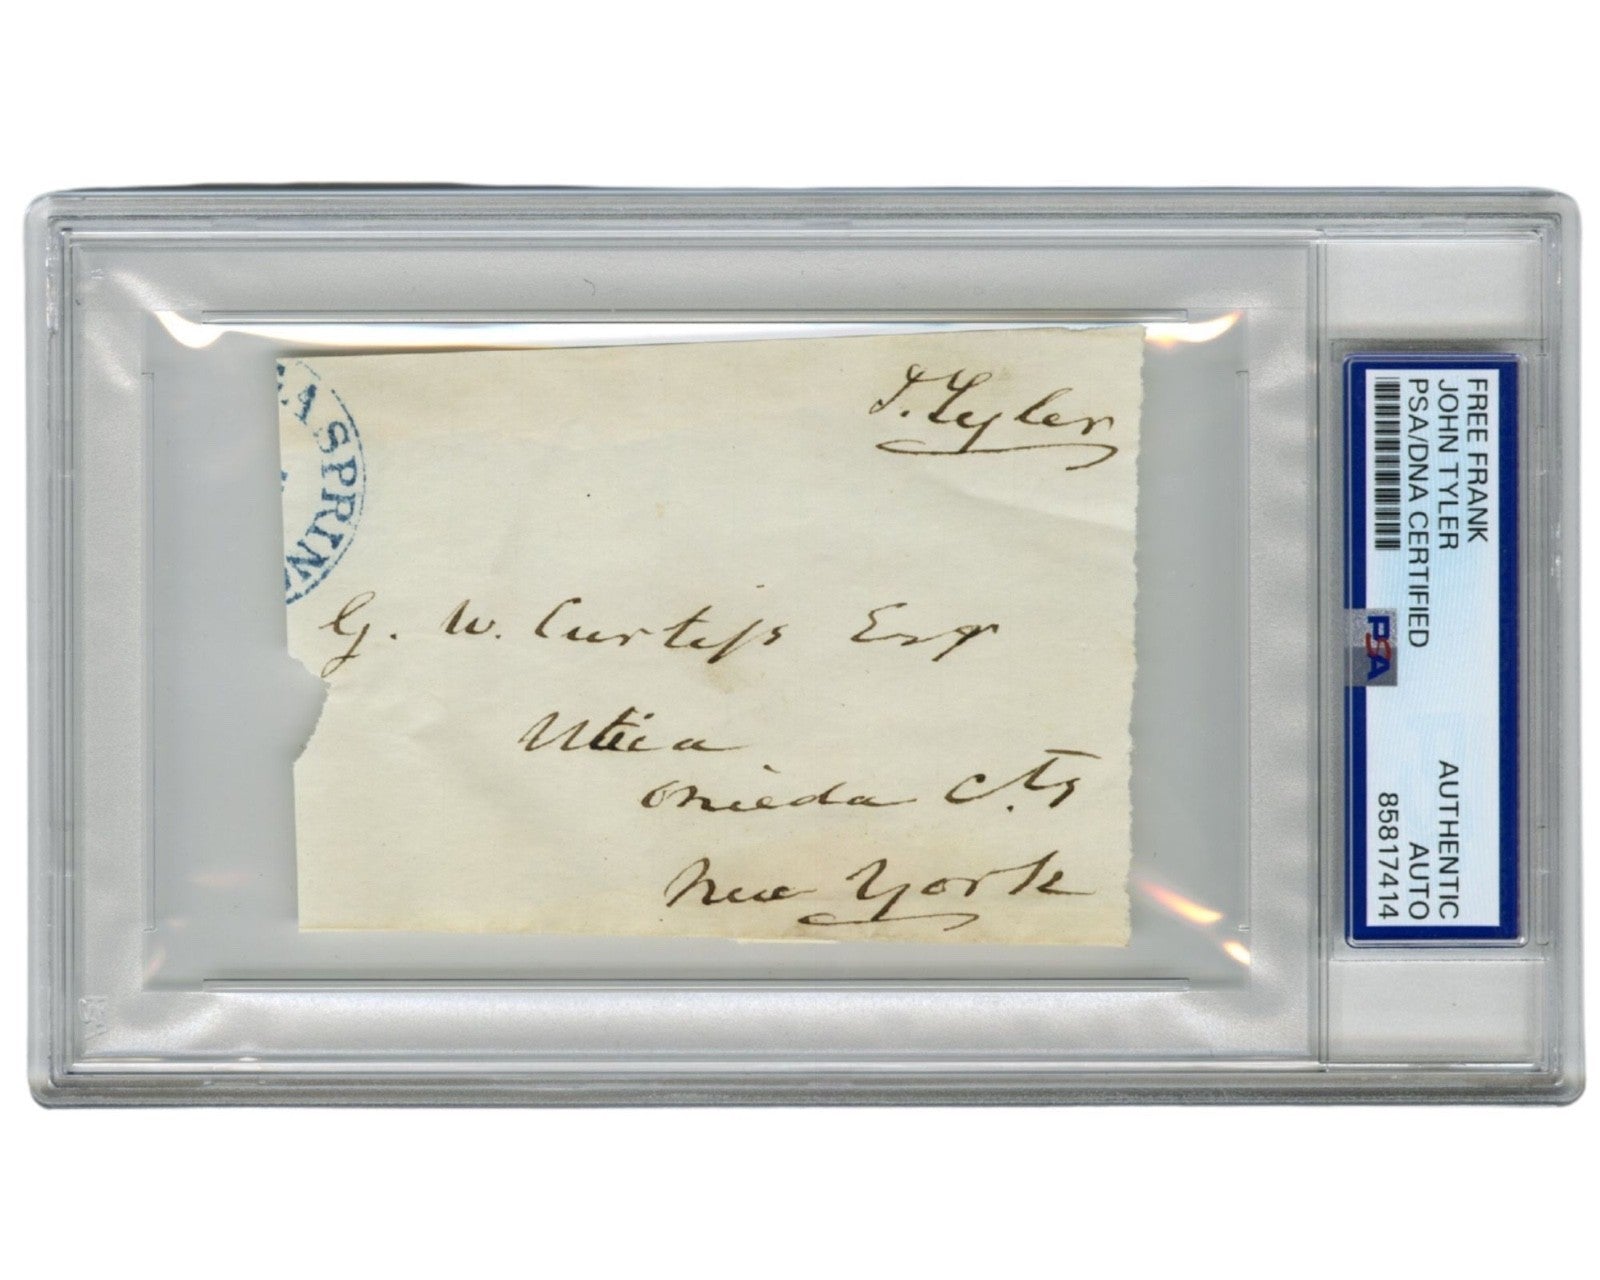 J. Tyler
A SPRIN
G. W. Curtiss Esqr
Utica
Onieda Cty
New York
FREE FRANK
JOHN TYLER
PSA/DNA CERTIFIED
AUTHENTIC
AUTO
85817414
PSA